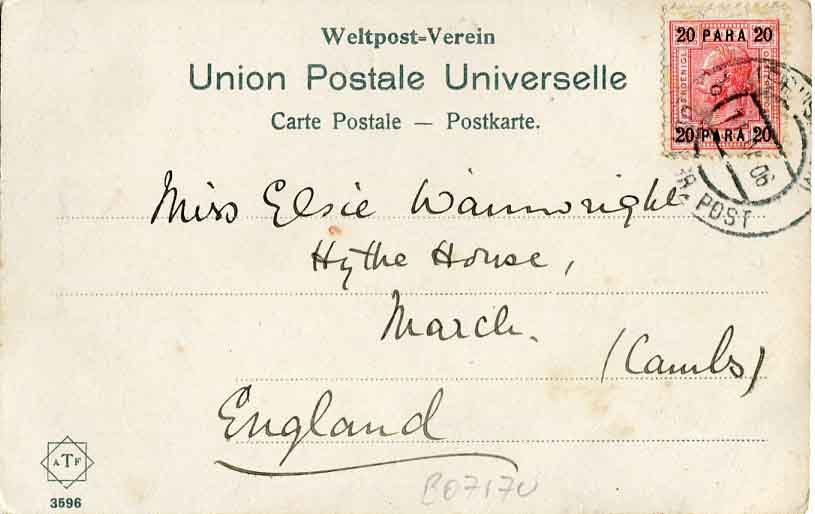 Weltpost-Verein
Union Postale Universelle
Carte Postale — Postkarte.
20 PARA 20
20 PARA 20
06
POST
Miss Elsie Wainwright
Hythe House,
March.
(Cambs)
England
ATF
3596